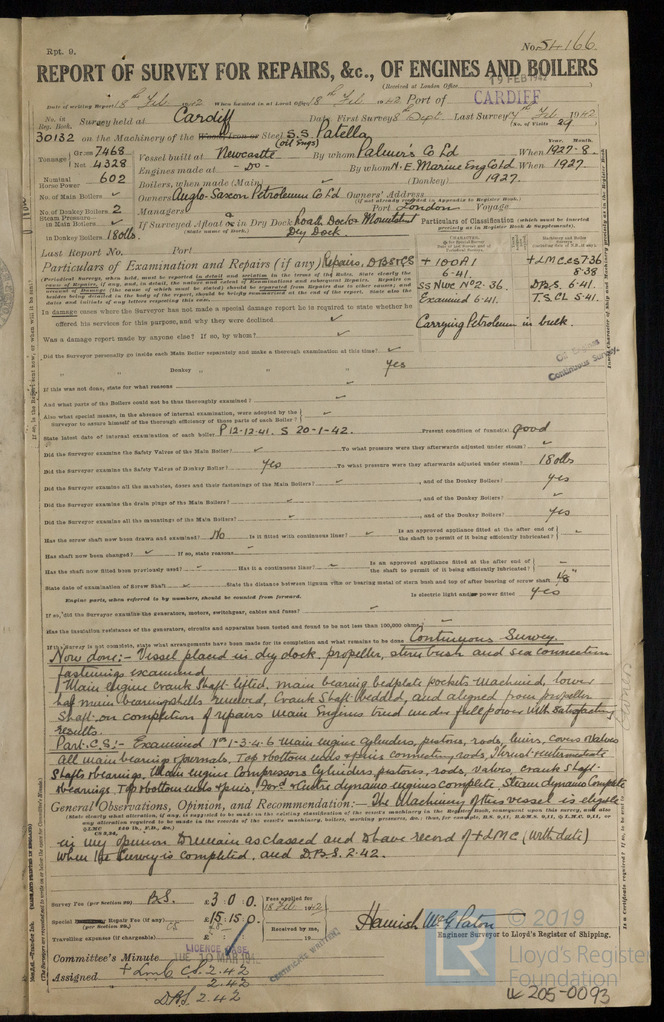 Rpt. 9.
No. 54166
REPORT OF SURVEY FOR REPAIRS, &c., OF ENGINES AND BOILERS
(Received at London Office 19 FEB 1942)
Date of writing Report 18th Feb 1942 When handed in at Local Office 18th Feb 1942 Port of CARDIFF
No. in Reg. Book. Survey held at Cardiff Date, First Survey 8th Sept Last Survey 7th Feb 1942
(No. of Visits 29)
30132 on the Machinery of the Wood, Iron or Steel S.S. Patella (Oil Engs)
Tonnage Gross 7468 Net 4328
Vessel built at Newcastle By whom Palmer's Co Ld When 1927-8
Engines made at - Do - By whom N.E. Marine Eng Co Ld When 1927.
Nominal Horse Power 602
Boilers, when made (Main) ✓ (Donkey) 1927.
No. of Main Boilers ✓
Owners Anglo-Saxon Petroleum Co Ld Owners' Address
(if not already recorded in Appendix to Register Book.)
No. of Donkey Boilers 2
Managers Port London Voyage
Steam Pressure in Main Boilers ✓
If Surveyed Afloat or in Dry Dock Roath Dock & Mountstuart Dry Dock.
(State name of Dock.)
in Donkey Boilers 180 lbs.
Particulars of Classification (which must be inserted precisely as in Register Book & Supplements).
Last Report No. Port
Particulars of Examination and Repairs (if any) Repairs, DBS & CS
+ 100A1
6-41.
SS Nwc No 2-36.
Examined 6.41.
Carrying Petroleum in bulk.
+LMC CS 7.36
8.38
DBS. 6-41.
T.S CL 5.41.
Oil Engines
Continuous Survey.
In damage cases where the Surveyor has not made a special damage report he is required to state whether he
offered his services for this purpose, and why they were declined ✓
Was a damage report made by anyone else? If so, by whom? ✓
Did the Surveyor personally go inside each Main Boiler separately and make a thorough examination at this time? ✓
„ „ Donkey „ „ „ yes
If this was not done, state for what reasons ✓
And what parts of the Boilers could not be thus thoroughly examined? ✓
Also what special means, in the absence of internal examination, were adopted by the
Surveyor to assure himself of the thorough efficiency of those parts of each Boiler? ✓
State latest date of internal examination of each boiler P 12-12-41. S 20-1-42. Present condition of funnel(s) good
Did the Surveyor examine the Safety Valves of the Main Boilers? ✓ To what pressure were they afterwards adjusted under steam? ✓
Did the Surveyor examine the Safety Valves of Donkey Boiler? yes To what pressure were they afterwards adjusted under steam? 180 lbs
Did the Surveyor examine all the manholes, doors and their fastenings of the Main Boilers? ✓, and of the Donkey Boilers? yes
Did the Surveyor examine the drain plugs of the Main Boilers? ✓, and of the Donkey Boilers? ✓
Did the Surveyor examine all the mountings of the Main Boilers? ✓, and of the Donkey Boilers? yes
Has the screw shaft now been drawn and examined? No Is it fitted with continuous liner? ✓ Is an approved appliance fitted at the after end of the shaft to permit of it being efficiently lubricated? -
Has shaft now been changed? ✓ If so, state reasons ✓
Has the shaft now fitted been previously used? ✓ Has it a continuous liner? ✓ Is an approved appliance fitted at the after end of the shaft to permit of it being efficiently lubricated? -
State date of examination of Screw Shaft ✓ State the distance between lignum vitæ or bearing metal of stern bush and top of after bearing of screw shaft 1/8"
Engine parts, when referred to by numbers, should be counted from forward. Is electric light and/or power fitted yes
If so, did the Surveyor examine the generators, motors, switchgear, cables and fuses? ✓
Has the insulation resistance of the generators, circuits and apparatus been tested and found to be not less than 100,000 ohms? -
If the Survey is not complete, state what arrangements have been made for its completion and what remains to be done Continuous Survey.
Now done:- Vessel placed in dry dock, propeller, stern bush and sea connection
fastenings examined
Main Engine Crank Shaft lifted, main bearing bedplate pockets machined, lower
half main bearing shells renewed, Crank Shaft bedded, and aligned from propeller
Shaft. on completion of repairs Main Engines tried under full power with satisfactory
results.
Part C.S:- Examined Nos 1-3-4-6 Main engine cylinders, pistons, rods, liners, covers & valves
All main bearings & journals, Top & bottom ends & pins connecting rods, Thrust & intermediate
Shafts & bearings, Main engine Compressors Cylinders pistons, rods, valves, crank shaft
& bearings, Top & bottom ends & pins, For'd & Centre dynamo engines complete, Steam dynamo Complete
General Observations, Opinion, and Recommendation:- The Machinery of this vessel is eligible
in my opinion to remain as classed and to have record of +LMC (with date)
when the Survey is completed, and D.B.S. 2-42.
Survey Fee (per Section 29) BS. £3 : 0 : 0.
Special Repair Fee (if any) CS £15 : 15 : 0
(per Section 29.)
Travelling expenses (if chargeable) £ : :
Fees applied for
18 Feb 1942
Received by me,
19
Hamish McG Paton
Engineer Surveyor to Lloyd's Register of Shipping.
LICENCE CASE
Committee's Minute TUE 10 MAR 1942
Assigned + LMC CS. 2.42
2.42
DBS 2.42
CERTIFICATE WRITTEN
© 2019
LR
Lloyd's Register
Foundation
LL 205-0093